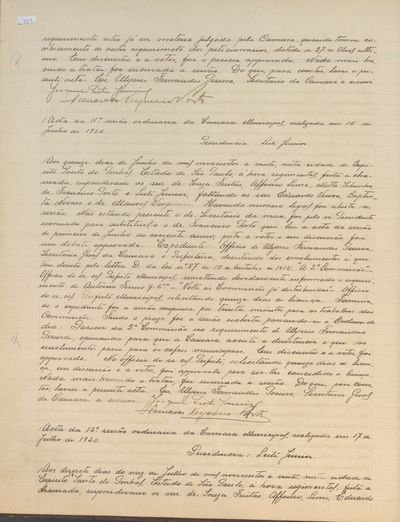 requerimento não já ser materia julgada pela Camara quando tomou co-
nhecimento de outro requerimento dos peticionarios, datado de 27 de Abril ulti-
mo. Em discussão e a votos, foi o parecer approvado. Nada mais ha
vendo a tratar foi encerrada a sessão. Do que, para constar lavro a pre-
sente acta. Eu, Ulysses Fernandes Secretario da Camara a escrevi
Leite Junior
Francisco Porto
Acta da 11ª sessão ordinaria da Camara Municipal, realizada em 15 de
Junho de 1920.
Presidencia Leite Junior
Aos quinze dias de Junho de mil novecentos e vinte, nesta cidade de Espi-
rito Santo do Pinhal, Estado de São Paulo, á hora regimental, feita a cha-
mada, responderam os srs. de Souza Freitas, Affonso Leme,
de Francisco Porto e Leite Junior, faltando os srs. Eduardo Baptis-
ta Novaes e de Manoel Havendo numero legal foi aberta a
sessão. Não estando presente o sr. Secretario da mesa, foi pelo sr. Presidente
nomeado para substituil-o o sr. Francisco Porto que leu a acta da sessão
de primeiro de Junho do corrente anno, posta a votos e em discussão foi
sem debate approvada. Expediente: Officio de Ulysses Fernandes
Secretario Geral da Camara e Prefeitura, desistindo dos emolumentos a que
tem direito pela letra D da lei nº 87 de 15 de Outubro de 1915. Á 2ª Commissão.
Officio do sr. cel. Prefeito Municipal remettendo devidamente informado o requeri-
mento de Antonio & Cia. Volte ás Commissões já distribuidas. Officio
do sr. cel. Prefeito Municipal, solicitando quinze dias de licença. Termina-
do o expediente foi a sessão suspensa por trinta minutos para os trabalhos das
Commissões. Findo o prazo foi a sessão reaberta, passando-se á Ordem do
dia: Parecer da 2ª Commissão no requerimento de Ulysses Fernandes
opinando para que a Camara acceite a desistencia e que os
emolumentos para os cofres municipaes. Em discussão e a votos, foi
approvado. No officio do sr. cel. Prefeito, solicitando quinze dias de licen-
ça, em discussão e a votos, foi approvado para ser-lhe concedida a licença.
Nada mais havendo a tratar, foi encerrada a sessão. Do que, para cons-
tar, lavro a presente acta. Eu, Ulysses Fernandes Secretario Geral
da Camara a escrevi.
Leite Junior
Francisco Porto
Acta da 12ª sessão ordinaria da Camara Municipal, realizada em 17 de
Julho de 1920.
Presidencia: Leite Junior.
Aos dezesete dias do mez de Julho de mil novecentos e vinte, nesta cidade de
Espirito Santo do Pinhal, Estado de São Paulo, á hora regimental, feita a
chamada, responderam os srs. de Souza Freitas, Affonso Leme, Eduardo